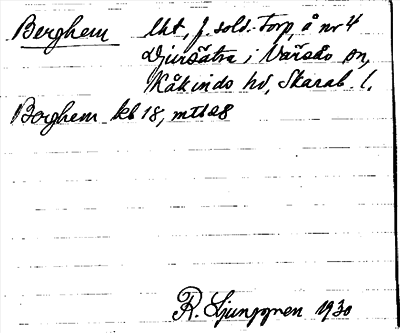 Berghem lht, f. sold. torp, å nr 4
Djursätra i Varsås sn,
Kåkinds hd, Skarab. l.
Borghem kb 18, mtbl 28
R. Ljunggren 1930